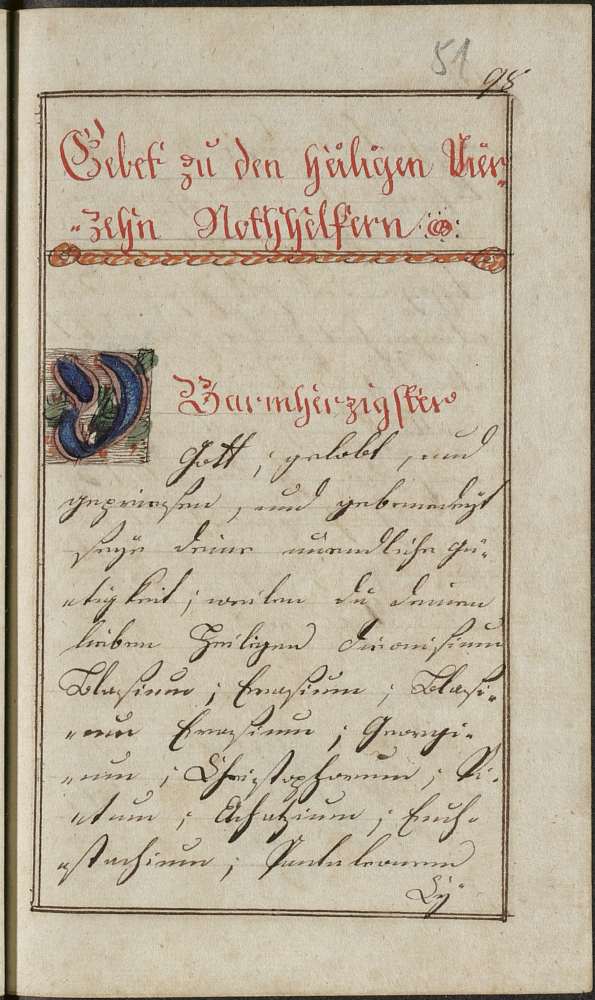 51
98
Gebet zu den Heiligen Vier-
-zehn Nothhelfern
O
Barmherzigster
Gott, gelobt, und
gepriesen, und gebenedeyt
seye deine unendliche Gü-
-tigkeit; weilen du deinen
lieben Heiligen Dionisium
Blasium; Erasium; Blasi-
-um Erasium; Georgi-
-um; Christophorum; Vi-
-tum; Achatium; Euch-
-stachium; Pantaleonem
Cy-